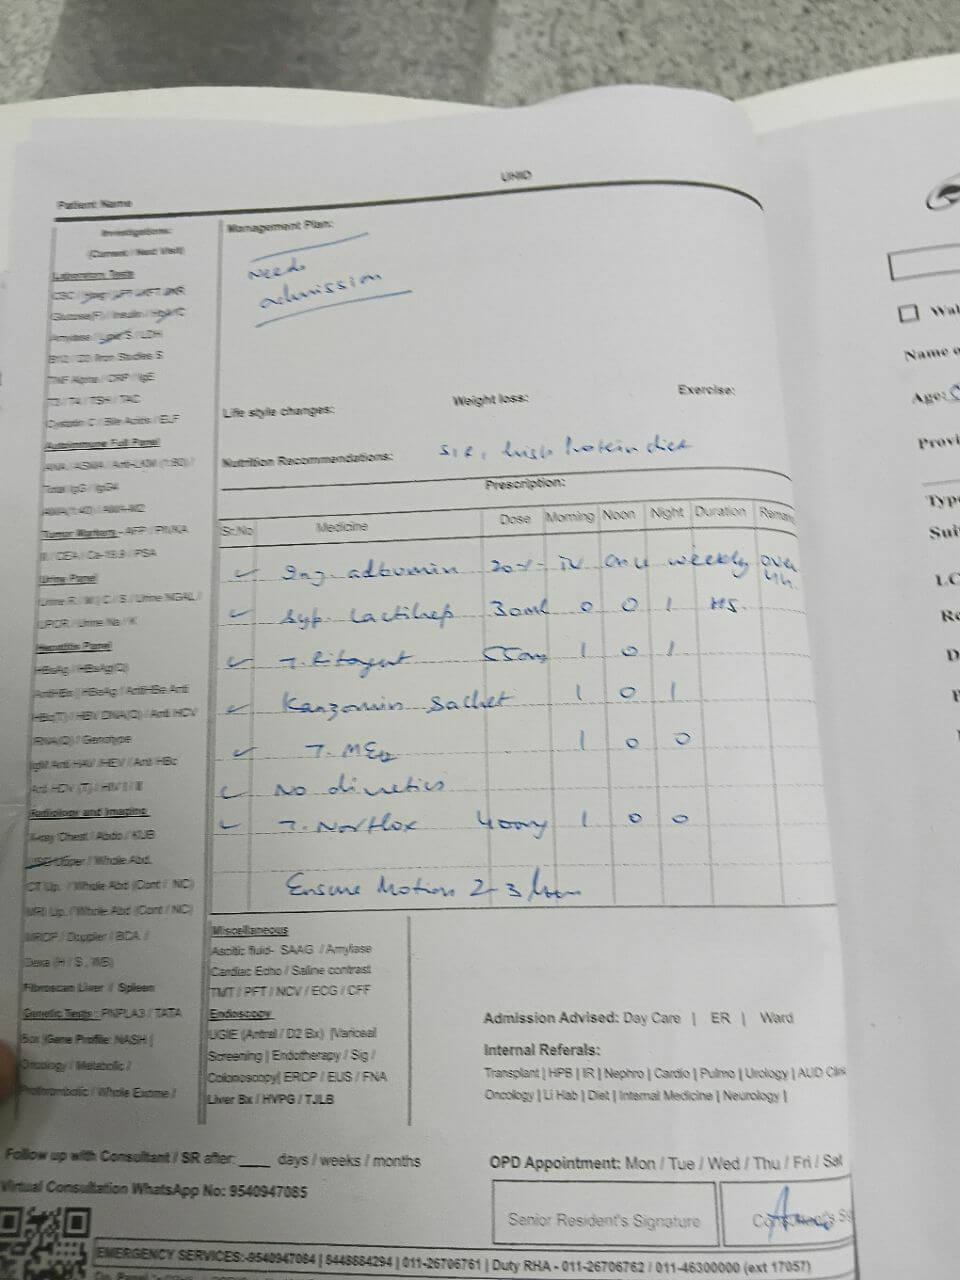 UHID
Patient Name
Investigations:
(Current / Next Visit)
Laboratory Tests
CBC /
Glucose(F) / Insulin /
Amylase / Lipase S / LDH
B12 / D3 Iron Studies S
TNF Alpha / CRP / IgE
T3 / T4 / TSH / TAC
Cystatin C / Bile Acids / ELF
Autoimmune Full Panel
ANA / ASMA / Anti-LKM (1:80) /
Total IgG / IgG4
AMA(1:40) / AMA-M2
Tumor Markers - AFP / PIVKA
II / CEA / Ca-19.9 / PSA
Urine Panel
Urine R / M | C / S / Urine NGAL /
UPCR / Urine Na / K
Hepatitis Panel
HBsAg / HBsAg(Q)
AntiHBs | HBeAg / AntiHBe Anti
HBc(T) / HBV DNA(Q) / Anti HCV
RNA(Q) / Genotype
IgM Anti HAV /HEV / Anti HBc
Anti HDV (T) / HIV I / II
Radiology and Imaging
X-ray Chest / Abdo / KUB
USG Upper / Whole Abd.
CT Up. / Whole Abd (Cont / NC)
MRI Up. / Whole Abd (Cont / NC)
MRCP / Doppler / BCA /
Dexa (H / S , WB)
Fibroscan Liver / Spleen
Genetic Tests : PNPLA3 / TATA
Box |Gene Profile: NASH |
Oncology / Metabolic /
Prothrombotic / Whole Exome /
Management Plan:
Needs
admission
Life style changes:
Weight loss:
Exercise:
Nutrition Recommendations:
high protein diet
Prescription:
Sr.No Medicine Dose Morning Noon Night Duration Remark
Inj. albumin 20% IV once weekly over 4h.
Syp. Lactihep 30ml 0 0 1 HS.
T. Rifagut 550mg 1 0 1
Kanzomin Sachet 1 0 1
T. 1 0 0
No diuretics
T. Norflox 400mg 1 0 0
Ensure Motion 2-3
Miscellaneous
Ascitic fluid- SAAG / Amylase
Cardiac Echo / Saline contrast
TMT / PFT / NCV / ECG / CFF
Endoscopy
UGIE (Antral / D2 Bx) |Variceal
Screening | Endotherapy / Sig /
Colonoscopy| ERCP / EUS / FNA
Liver Bx / HVPG / TJLB
Admission Advised: Day Care | ER | Ward
Internal Referals:
Transplant | HPB | IR | Nephro | Cardio | Pulmo | Urology | AUD Clin
Oncology | Li Hab | Diet | Internal Medicine | Neurology |
Follow up with Consultant / SR after: ____ days / weeks / months
OPD Appointment: Mon / Tue / Wed / Thu / Fri / Sat
Virtual Consultation WhatsApp No: 9540947085
Senior Resident's Signature
EMERGENCY SERVICES:-9540947084 | 8448884294 | 011-26706761 | Duty RHA - 011-26706762 / 011-46300000 (ext 17057)
Name o
Age:
Provi